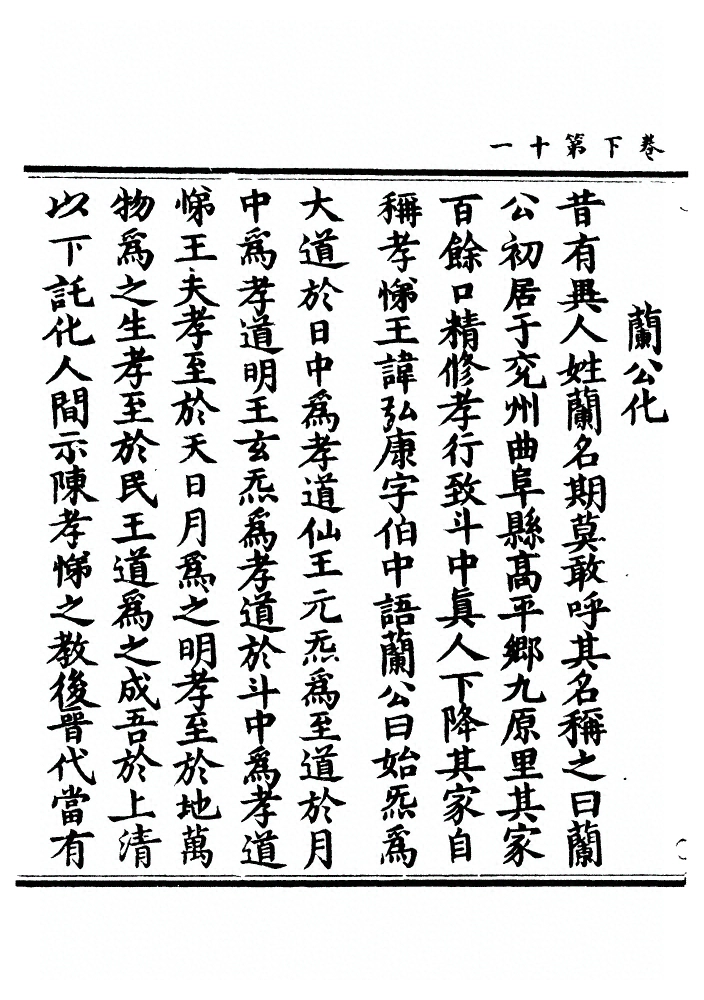 卷下第十一
蘭公化
昔有異人姓蘭名期莫敢呼其名稱之曰蘭
公初居于兖州曲阜縣髙平鄉九原里其家
百餘口精修孝行致斗中眞人下降其家自
稱孝悌王諱弘康字伯中語蘭公曰始炁爲
大道於日中爲孝道仙王元炁爲至道於月
中爲孝道明王玄炁爲孝道於斗中爲孝道
悌王夫孝至於天日月爲之明孝至於地萬
物爲之生孝至於民王道爲之成吾於上清
以下託化人間示陳孝悌之教後晉代當有